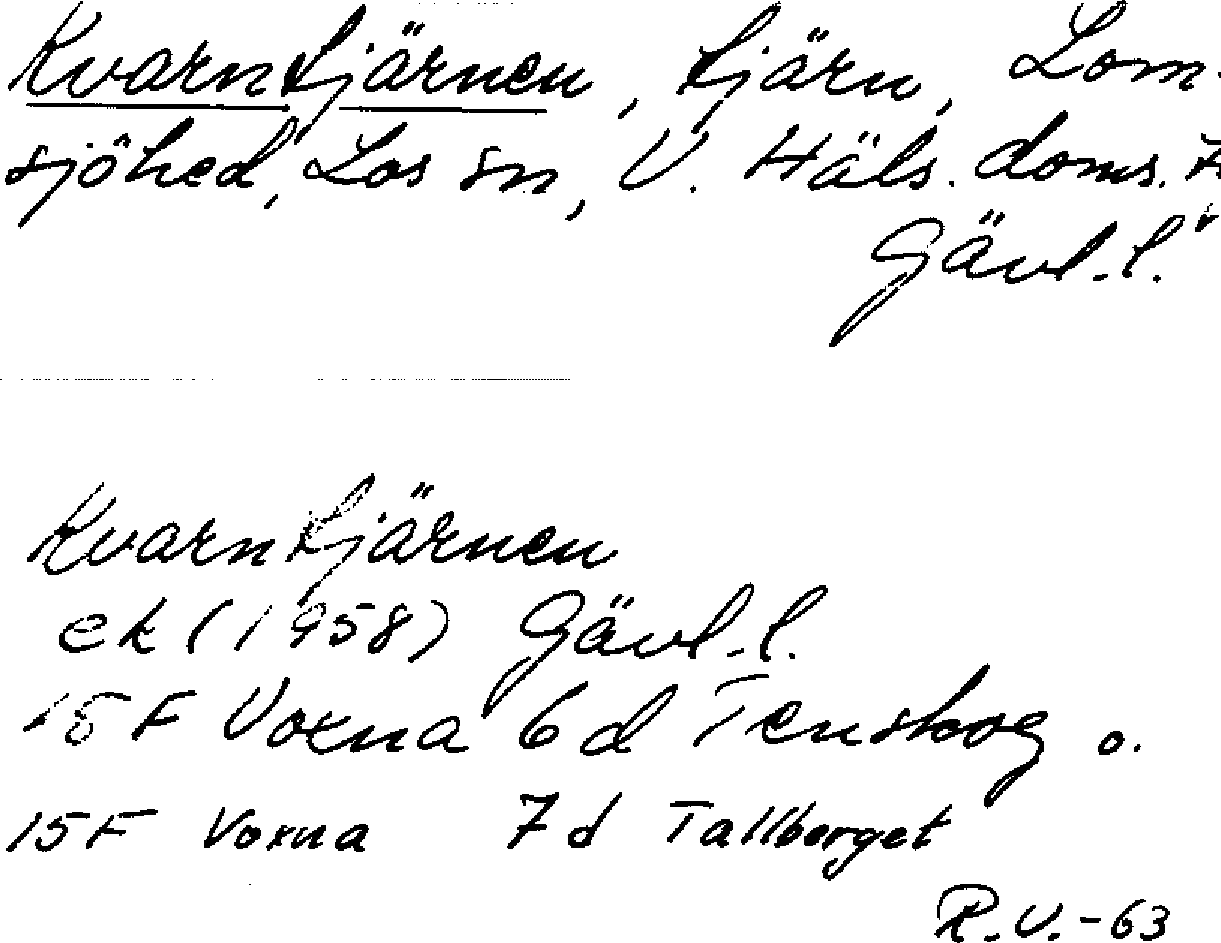 Kvarntjärnen, tjärn, Lom-
sjöhed, Los sn, V. Häls. doms.
Gävl.l.
Kvarntjärnen
ek (1958) Gävl.l.
15F Voxna 6d Tenskog o.
15F Voxna 7d Tallberget
R.V.-63